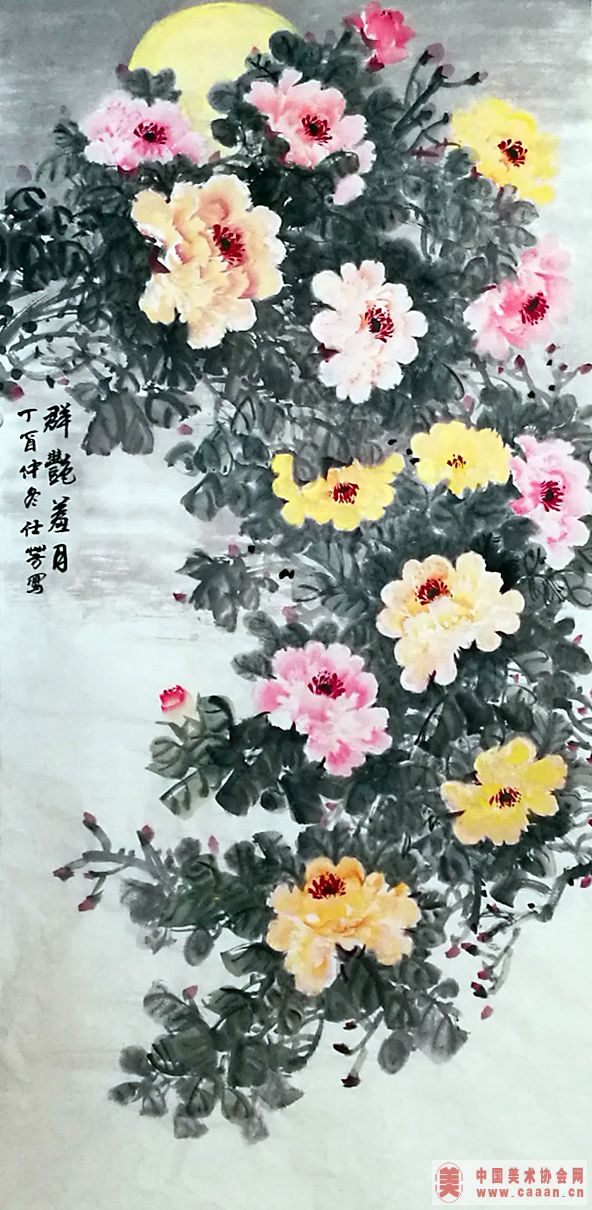 群艷羞月
丁酉仲冬仕芳寫
美
中国美术协会网
www.caaan.cn